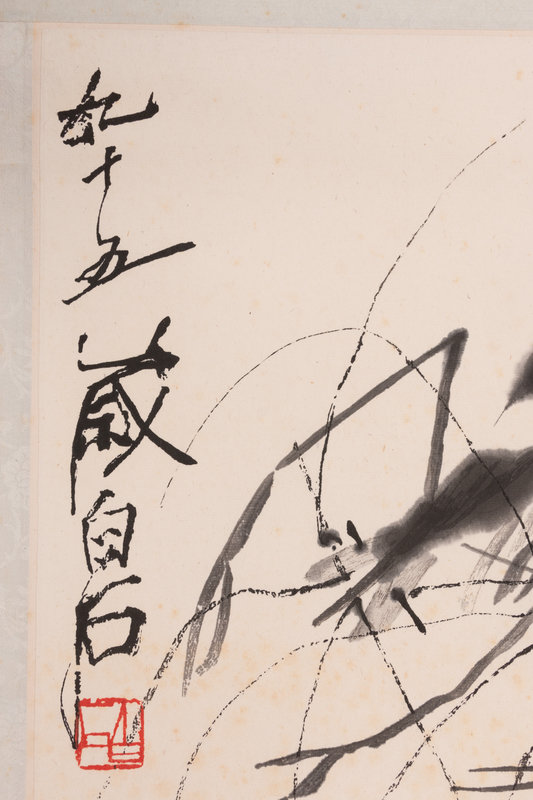 九十五歲白石
白石